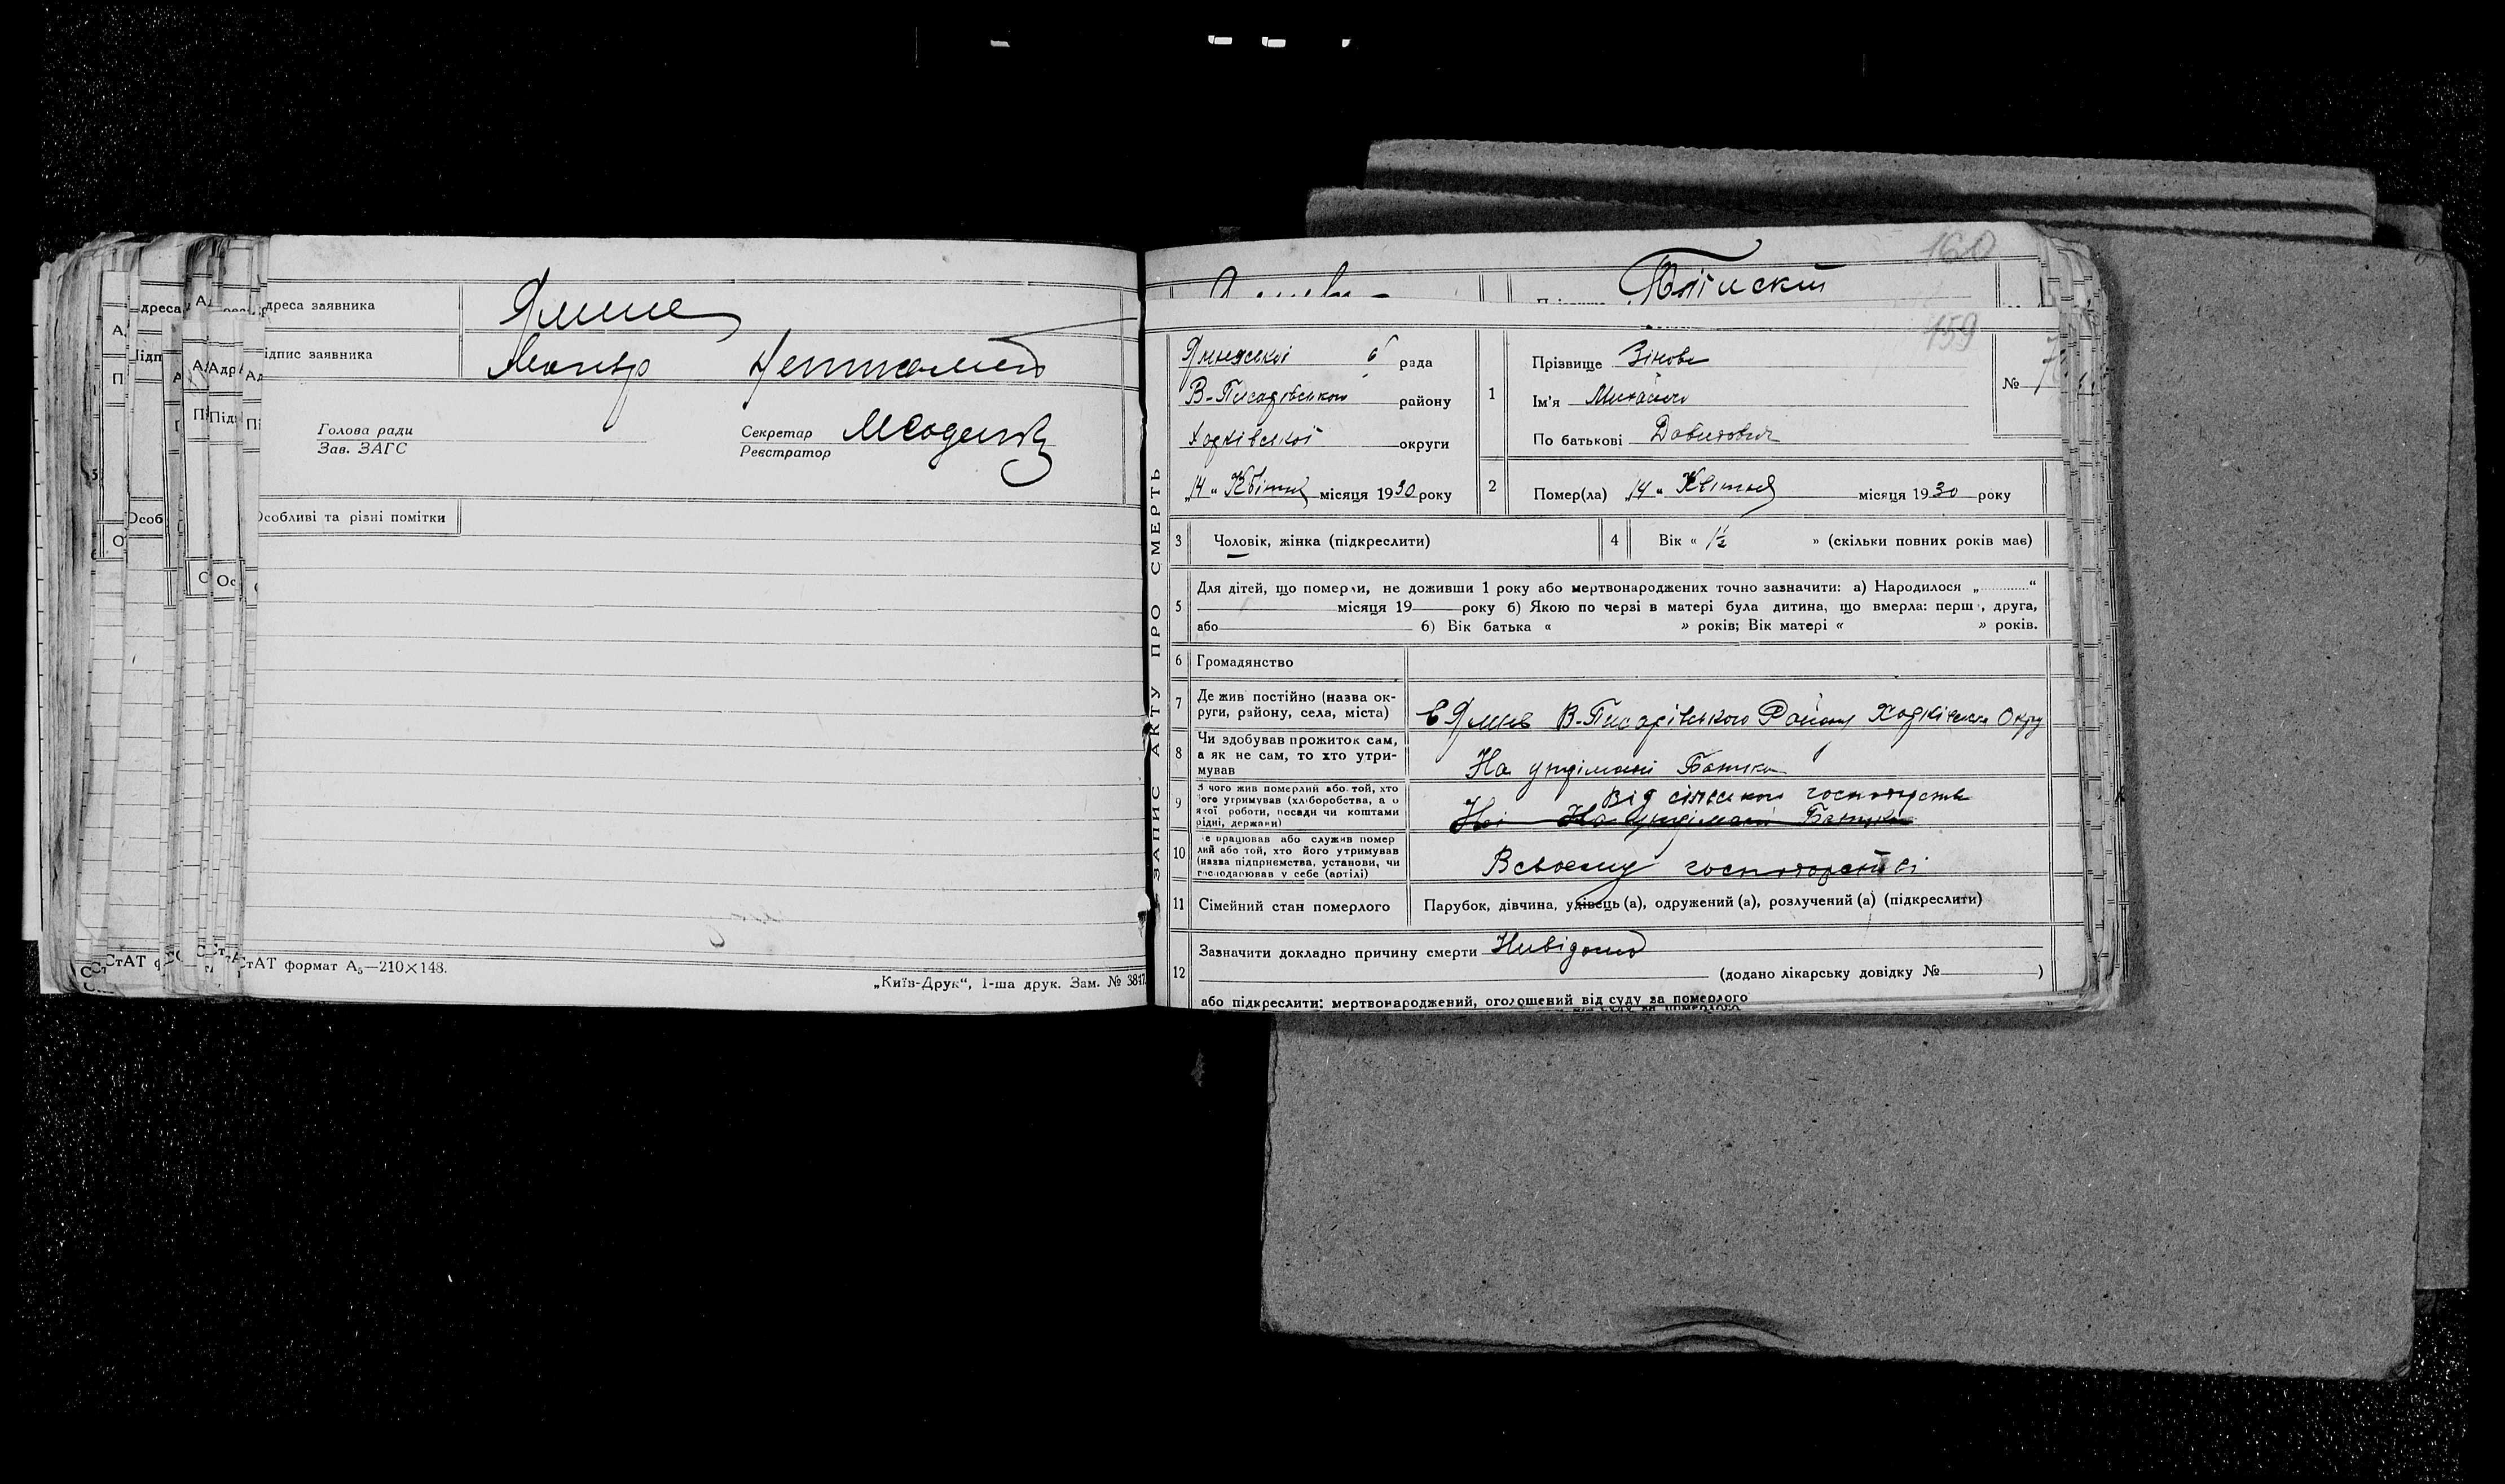 адреса заявника Ямне
підпис заявника
Голова ради
Зав. ЗАГС
Секретар
Реєстратор
Особливі та різні помітки
СтАТ формат А₅—210×148.
„Київ-Друк“, 1-ша друк. Зам. № 3817
160
159
ЗАПИС АКТУ ПРО СМЕРТЬ
рада
В-Писарівського району
Харківської округи
„14“ Квітня місяця 1930 року
1
Прізвище
Ім'я Михайло
По батькові Давидович
№
2
Помер(ла) „14“ Квітня місяця 1930 року
3 Чоловік, жінка (підкреслити)
4 Вік « 1½ » (скільки повних років має)
5 Для дітей, що померли, не доживши 1 року або мертвонароджених точно зазначити: а) Народилося „..........“
місяця 19 року б) Якою по черзі в матері була дитина, що вмерла: перш , друга,
або б) Вік батька « » років; Вік матері « » років.
6 Громадянство
7 Де жив постійно (назва ок-
руги, району, села, міста)
В-Писарівського Району
8 Чи здобував прожиток сам,
а як не сам, то хто утри-
мував
На утріманні Батька
9 З чого жив померлий або той, хто
його утримував (хліборобства, а о
якої роботи, посади чи коштами
рідні, держави)
Від сільського господарства
Ні На утріманні Батька
10 Де працював або служив помер
лий або той, хто його утримував
(назва підприємства, установи, чи
господарював у себе (артілі)
В своему господарстві
11 Сімейний стан померлого
Парубок, дівчина, удівець (а), одружений (а), розлучений (а) (підкреслити)
12
Зазначити докладно причину смерти Невідомо
(додано лікарську довідку № )
або підкреслити: мертвонароджений, оголошений від суду за померлого